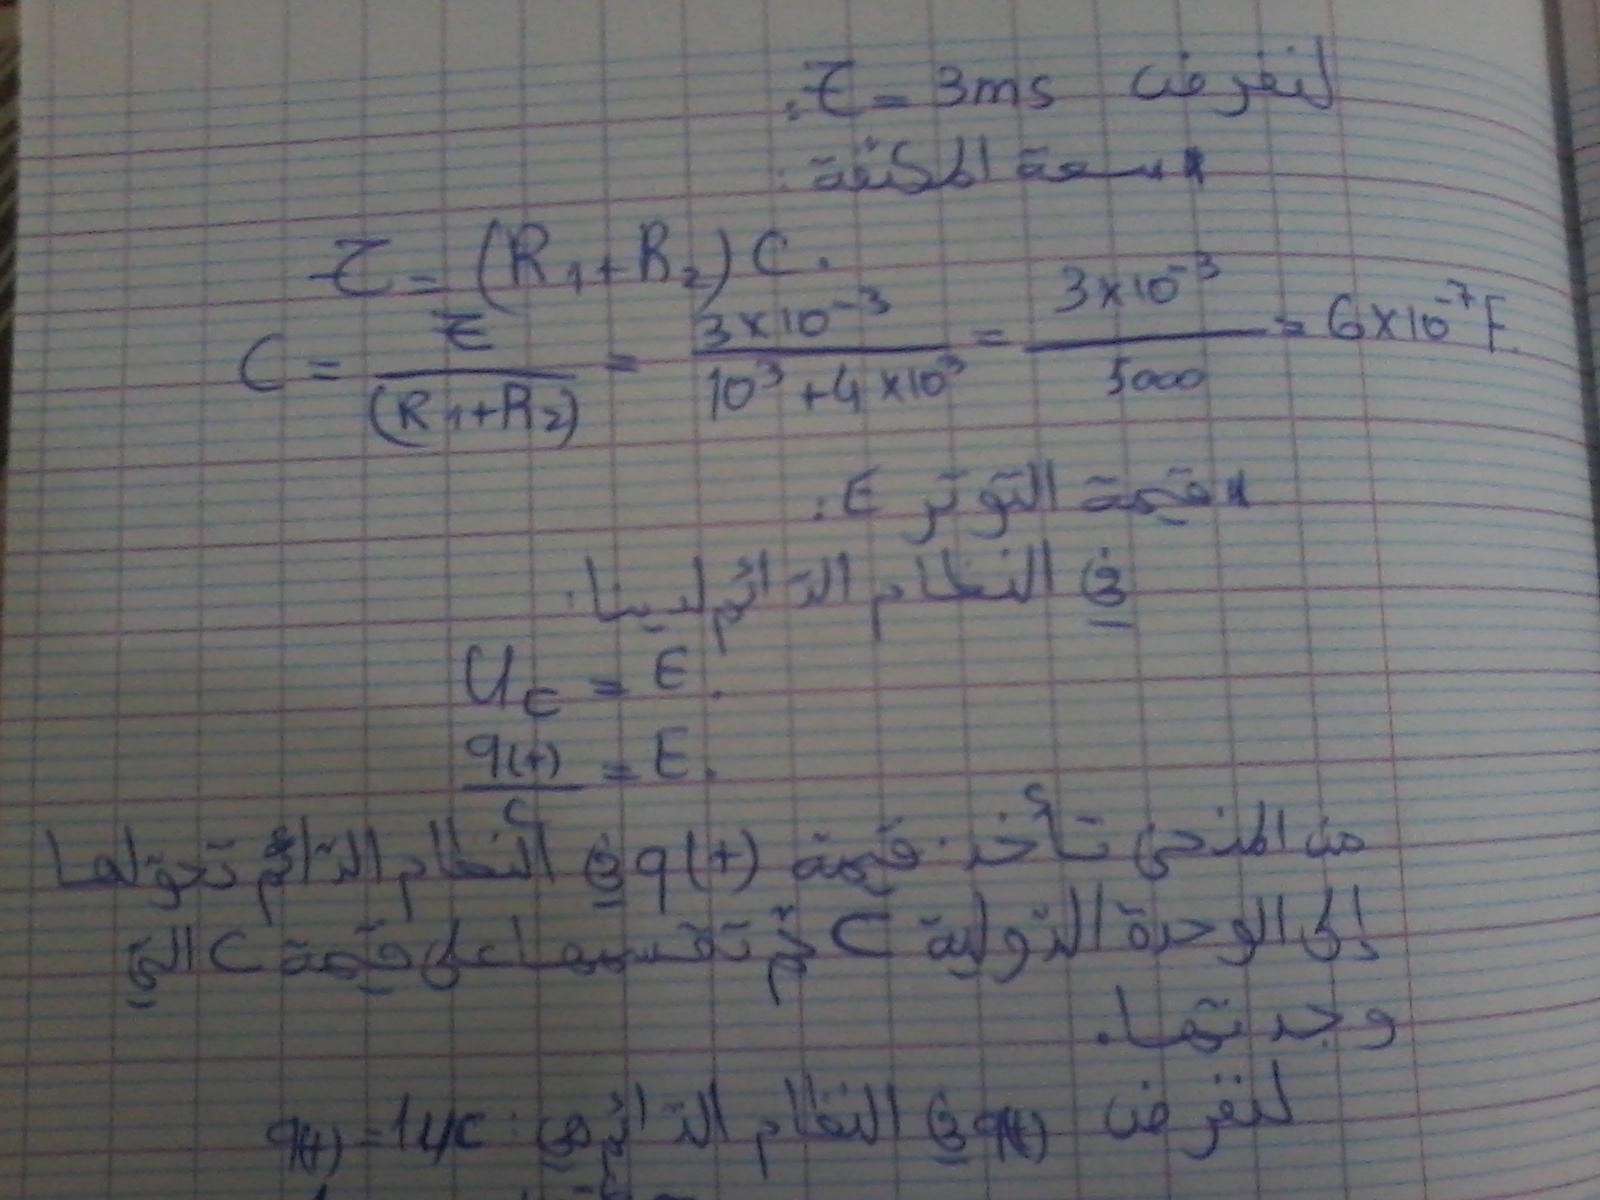 لنفرض τ = 3ms.
* سعة المكثفة:
τ = (R₁+R₂) C.
C = τ / (R₁+R₂) = 3×10⁻³ / 10³+4×10³ = 3×10⁻³ / 5000 = 6×10⁻⁷ F.
* قيمة التوتر E:
في النظام الدائم لدينا:
U_c = E.
q(t) / C = E.
من المنحنى نأخذ قيمة q(t) في النظام الدائم نحولها
إلى الوحدة الدولية C ثم نقسمها على قيمة C التي
وجدتها.
لنفرض q(t) في النظام الدائم هي: q(t) = 1μC